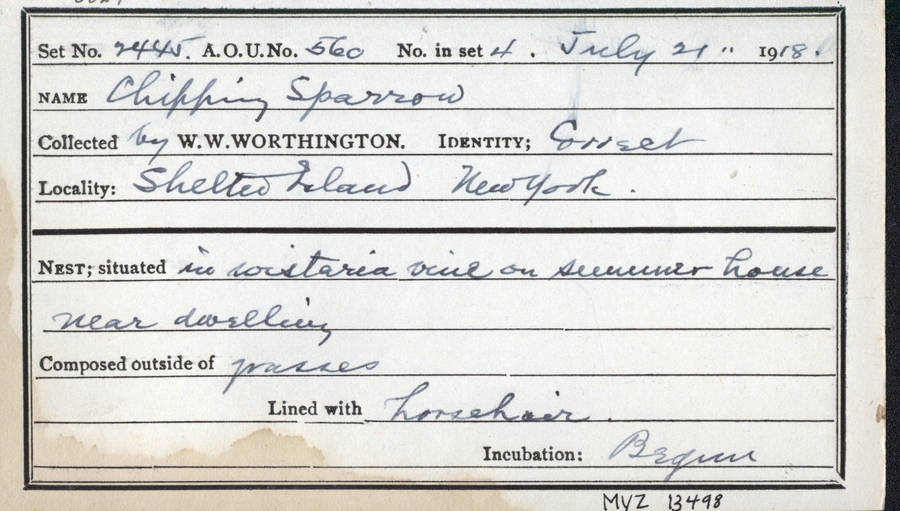 Set No. 2445. A.O.U.No. 560 No. in set 4. July 21" 1918.
NAME Chipping Sparrow
Collected by W.W.WORTHINGTON. IDENTITY; Correct
Locality: Shelter Island New York.
NEST; situated in wistaria vine on summer house
near dwelling
Composed outside of grasses
Lined with horsehair.
Incubation: Begun
MVZ 13498